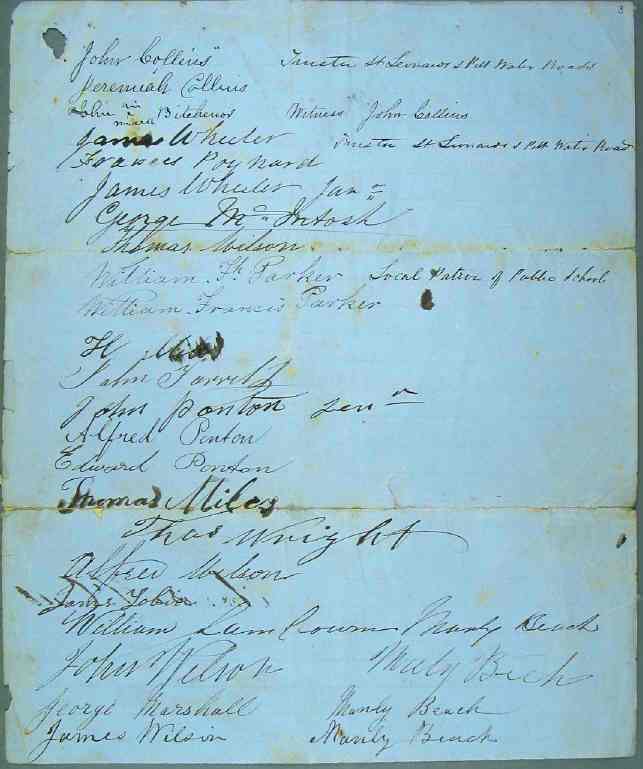 3
John Collins Trustee St Leonards & Pitt Water Roads
Jeremiah Collins
his
John x Bitchenos Witness John Collins
mark
James Wheeler Trustee St Leonards & Pitt Water Road
Frances Poynard
James Wheeler Junr
George McIntosh
Thomas Wilson
William Fs Parker Local Patron of Public School
William Francis Parker
H Miles
John Farrell
John Ponton Senr
Alfred Ponton
Edward Ponton
Thomas Miles
Thos Wright
Alfred Wilson
James
William Manly Beach
John Wilson Manly Bech
George Marshall Manly Beach
James Wilson Manly Beach